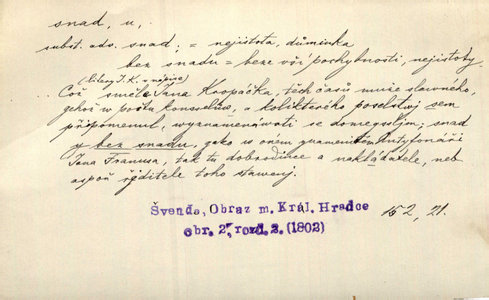 snad, u,
subst. adv. snad; = nejistota, důminka
bez snadu = beze vší pochybnosti, nejistoty.
(litery J. K. a nápise)
Což směle Jana Kropáčka, těch časů muže slavného,
gehož w počtu konsselůw, a kolikterého poselstwj sem
připomenul, wyznamenáwati se domeyssljm; snad
y bez snadu, gako w oném znamenitém Antyfonáři
Jana Franusa, tak tu dobrodince a nekládatele, neb
aspoň řiditele toho stawenj.
Švenda, Obraz m. Král. Hradce 152, 21.
obr. 2, rozd. 2. (1802)